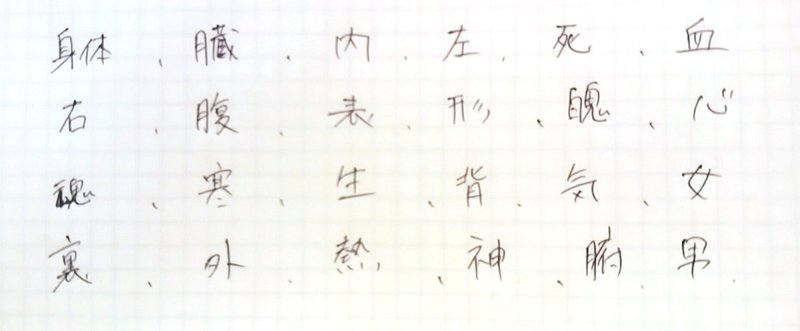 身体、臓、内、左、死、血
右、腹、表、形、魄、心
魂、寒、生、背、気、女
裏、外、熱、神、腑、男.